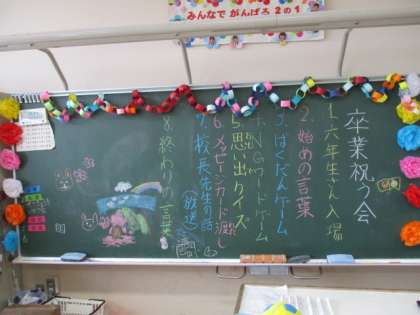 みんなで がんばろう 2の1
卒業祝う会
1.六年生さん入場
2.始めの言葉
3.ばくだんゲーム
4.NGワードゲーム
5.思い出クイズ
6.メッセージカード渡し
7.校長先生の話(放送)
8.終わりの言葉